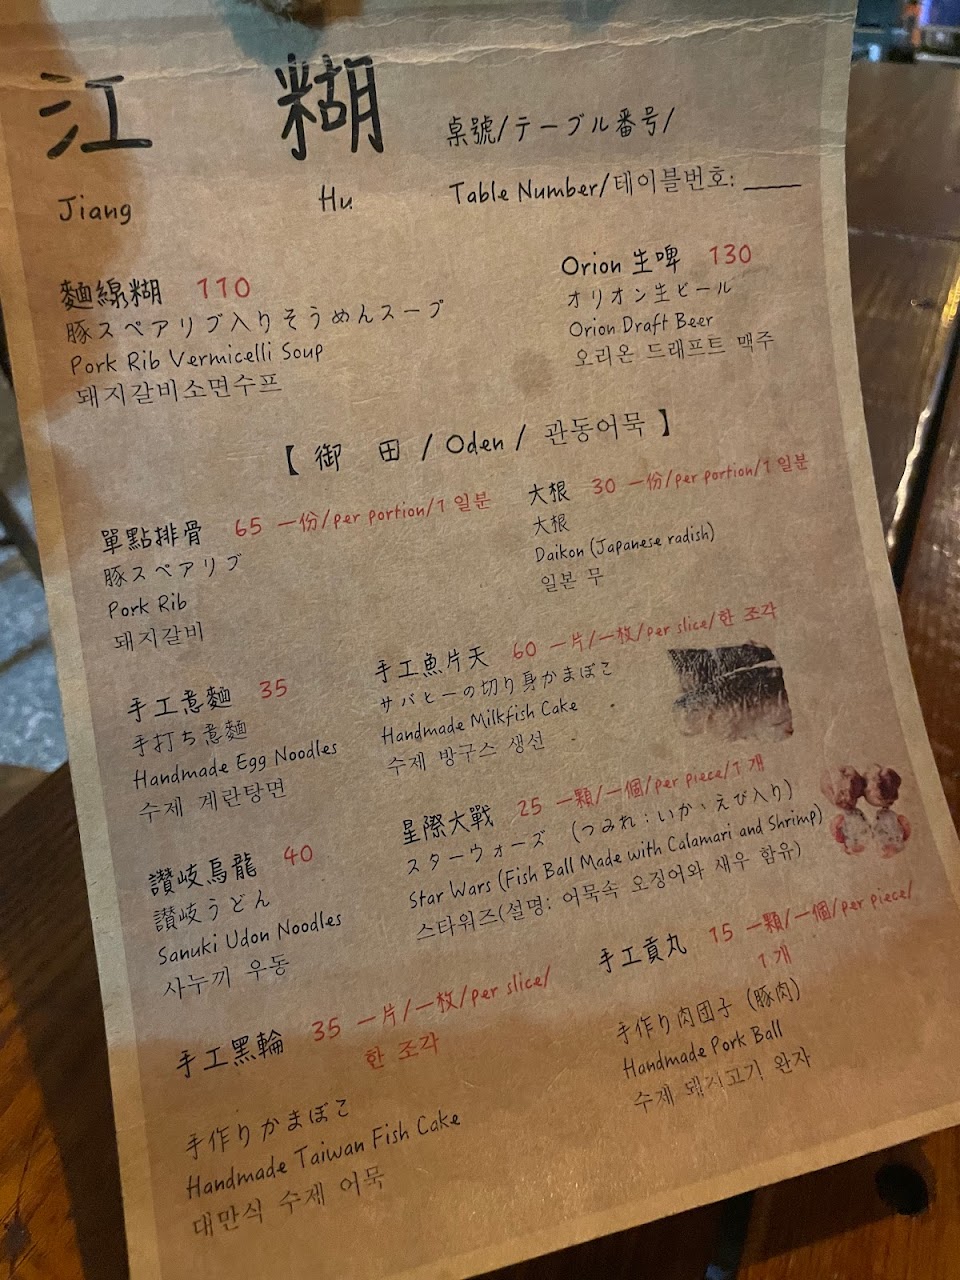 江 糊
Jiang Hu
桌號/テーブル番号/
Table Number/테이블번호: ____
麵線糊 110
豚スペアリブ入りそうめんスープ
Pork Rib Vermicelli Soup
돼지갈비소면수프
Orion 生啤 130
オリオン生ビール
Orion Draft Beer
오리온 드래프트 맥주
【 御 田 / Oden / 관동어묵 】
單點排骨 65 一份/per portion/1 일분
豚スペアリブ
Pork Rib
돼지갈비
大根 30 一份/per portion/1 일분
大根
Daikon (Japanese radish)
일본 무
手工意麵 35
手打ち意麵
Handmade Egg Noodles
수제 계란탕면
手工魚片天 60 一片/一枚/per slice/한 조각
サバヒーの切り身かまぼこ
Handmade Milkfish Cake
수제 방구스 생선
讚岐烏龍 40
讚岐うどん
Sanuki Udon Noodles
사누끼 우동
星際大戰 25 一顆/一個/per piece/1 개
スターウォーズ (つみれ：いか、えび入り)
Star Wars (Fish Ball Made with Calamari and Shrimp)
스타워즈(설명: 어묵속 오징어와 새우 함유)
手工黑輪 35 一片/一枚/per slice/
한 조각
手作りかまぼこ
Handmade Taiwan Fish Cake
대만식 수제 어묵
手工貢丸 15 一顆/一個/per piece/
1 개
手作り肉団子 (豚肉)
Handmade Pork Ball
수제 돼지고기 완자